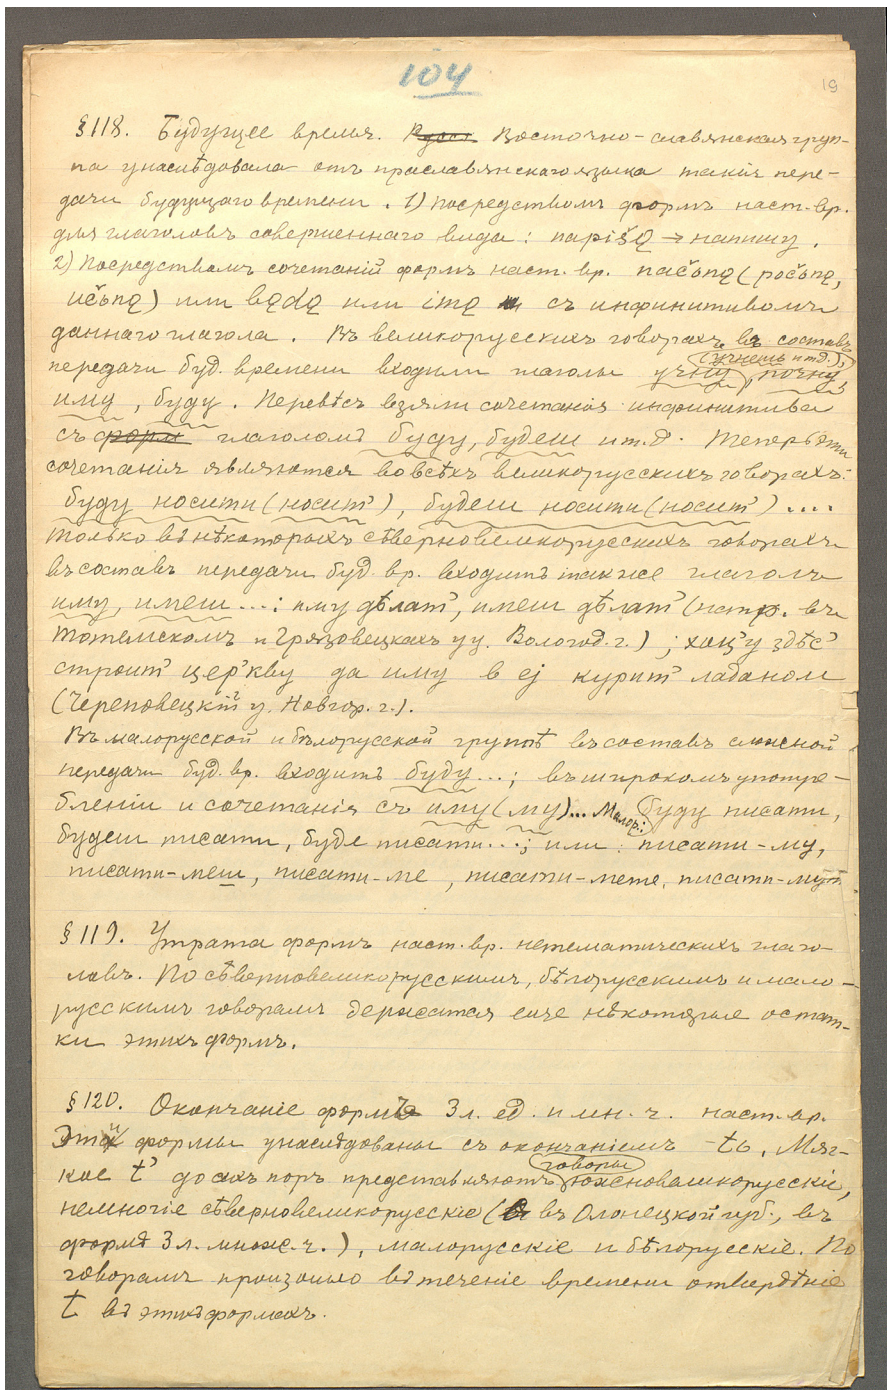 104
19
§ 118. Будущее время. Восточно-славянская груп-
па унаслѣдовала отъ праславянскаго языка такія пере-
дачи будущаго времени. 1) Посредствомъ формъ наст. вр.
для глаголовъ совершеннаго вида: napišǫ → напишу.
2) Посредствомъ сочетаній формъ наст. вр. načьnǫ (počьnǫ,
učьnǫ) или bǫdǫ или imǫ съ инфинитивомъ
даннаго глагола. Въ великорусскихъ говорахъ въ составъ
передачи буд. времени входили глаголы учну (учнешь и т.д.), почну,
иму, буду. Перевѣсъ взяли сочетанія инфинитива
съ форм глаголомъ буду, будеш и т.д. Теперь эти
сочетанія являются во всѣхъ великорусскихъ говорахъ:
буду носити (носит’), будеш носити (носит’) ....
Только въ нѣкоторыхъ сѣверновеликорусскихъ говорахъ
въ составъ передачи буд. вр. входитъ также глаголъ
иму, имеш ...: иму дѣлат’, имеш дѣлат’ (напр. въ
Тотемскомъ и Грязовецкахъ уу. Вологод. г.); хоц’у здѣс’
строит’ цер’кву да иму в еj курит’ ладаном
(Череповецкій у. Новгор. г.).
Въ малорусской и бѣлорусской группѣ въ составъ сложной
передачи буд. вр. входитъ буду...; въ широкомъ употре-
бленіи и сочетанія съ иму (му)... Малор.: буду писати,
будеш писати, буде писати...; или: писати-му,
писати-меш, писати-ме, писати-мете, писати-мут
§ 119. Утрата формъ наст. вр. нетематическихъ глаго-
ловъ. По сѣверновеликорусскимъ, бѣлорусскимъ и мало-
русскимъ говорамъ держатся еще нѣкоторые остат-
ки этихъ формъ.
§ 120. Окончаніе формъ 3 л. ед. и мн. ч. наст. вр.
Эти формы унаслѣдованы съ окончаніемъ -tь. Мяг-
кое t’ до сихъ поръ представляютъ говоры южновеликорусскіе,
немногіе сѣверновеликорусскіе (въ Олонецкой губ., въ
формѣ 3 л. множ. ч.), малорусскіе и бѣлорусскіе. По
говорамъ произошло въ теченіе времени отвердѣніе
t въ этихъ формахъ.